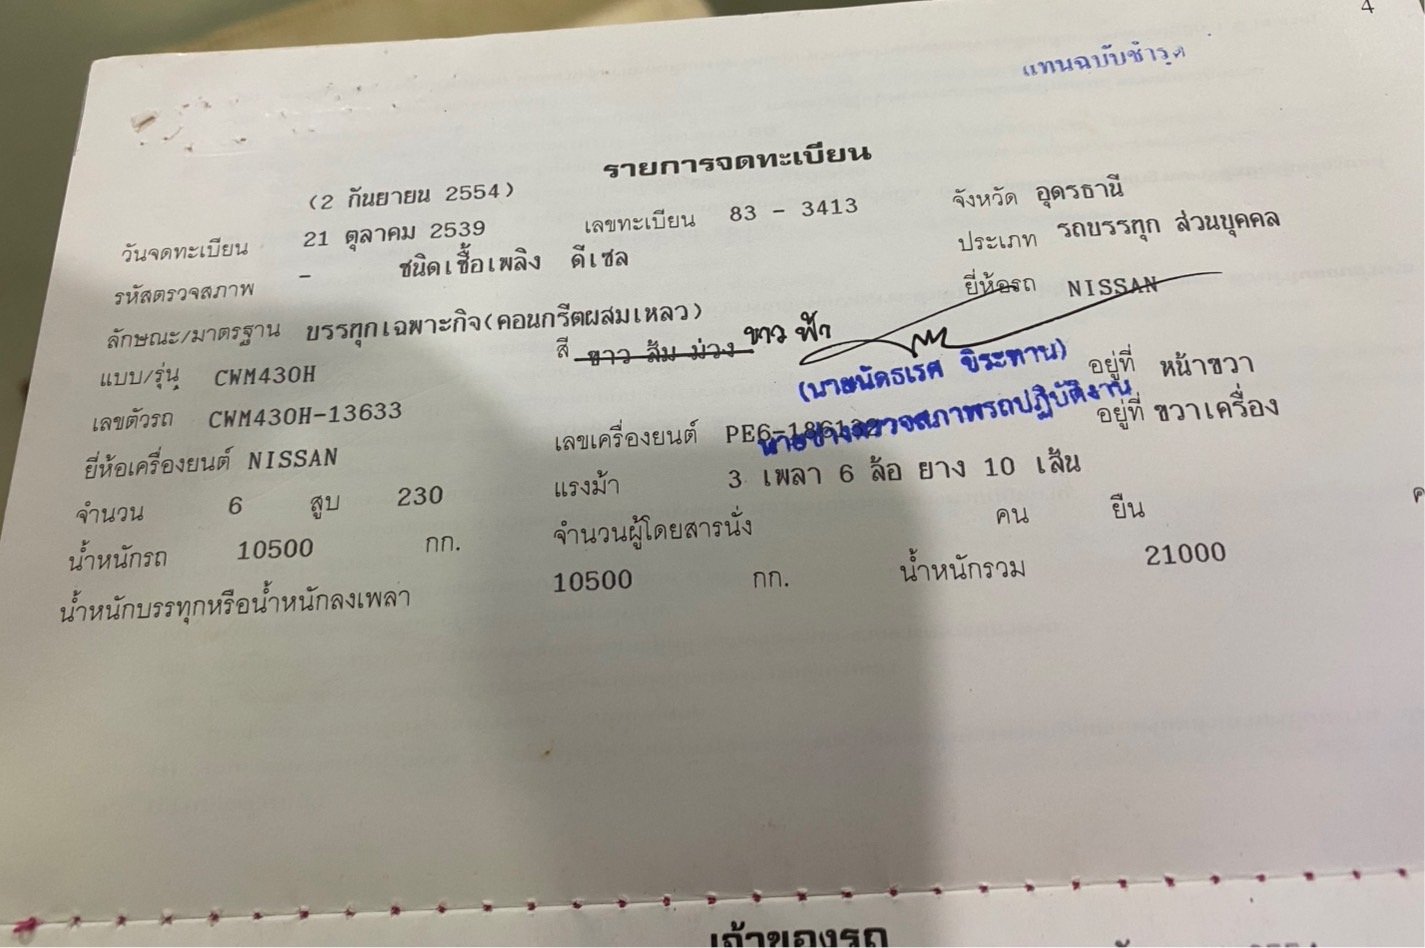 4
แทนฉบับชำรุด
รายการจดทะเบียน
(2 กันยายน 2554)
วันจดทะเบียน 21 ตุลาคม 2539 เลขทะเบียน 83 - 3413 จังหวัด อุดรธานี
รหัสตรวจสภาพ - ชนิดเชื้อเพลิง ดีเซล ประเภท รถบรรทุก ส่วนบุคคล
ลักษณะ/มาตรฐาน บรรทุกเฉพาะกิจ(คอนกรีตผสมเหลว) ยี่ห้อรถ NISSAN
แบบ/รุ่น CWM430H สี ขาว ส้ม ม่วง ขาว ฟ้า
เลขตัวรถ CWM430H-13633 อยู่ที่ หน้าขวา
ยี่ห้อเครื่องยนต์ NISSAN เลขเครื่องยนต์ อยู่ที่ ขวาเครื่อง
นายช่างตรวจสภาพรถปฏิบัติงาน
จำนวน 6 สูบ 230 แรงม้า 3 เพลา 6 ล้อ ยาง 10 เส้น
น้ำหนักรถ 10500 กก. จำนวนผู้โดยสารนั่ง คน ยืน
น้ำหนักบรรทุกหรือน้ำหนักลงเพลา 10500 กก. น้ำหนักรวม 21000
เจ้าของรถ